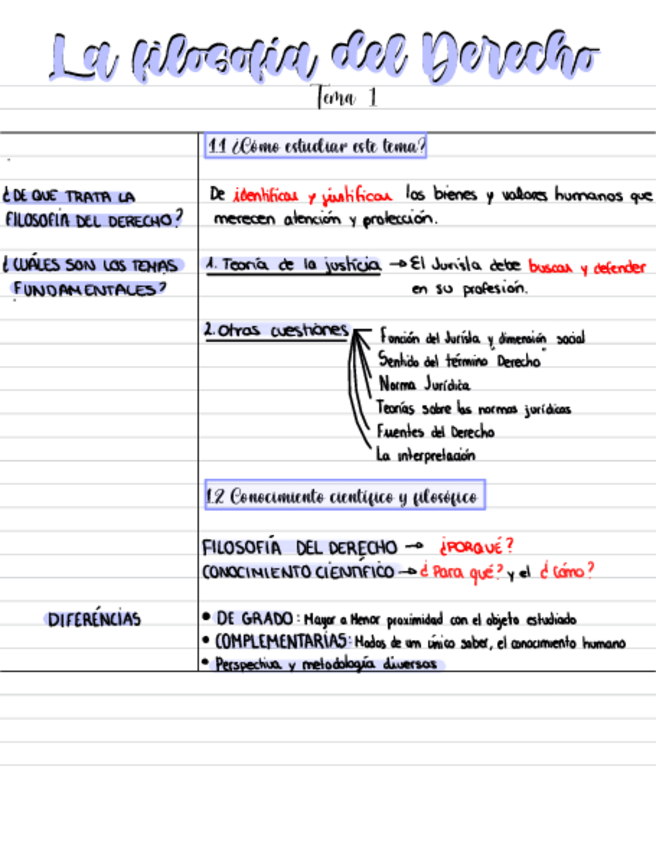 La filosofía del Derecho
Tema 1
1.1 ¿Cómo estudiar este tema?
¿DE QUE TRATA LA
FILOSOFÍA DEL DERECHO?
De identificar y justificar los bienes y valores humanos que
merecen atención y protección.
¿CUÁLES SON LOS TEMAS
FUNDAMENTALES?
1. Teoría de la justicia → El Jurista debe buscar y defender
en su profesión.
2. Otras cuestiones
Función del Jurista y dimensión social
Sentido del término "Derecho"
Norma Jurídica
Teorías sobre las normas jurídicas
Fuentes del Derecho
La interpretación
1.2 Conocimiento científico y filosófico
FILOSOFÍA DEL DERECHO → ¿PORQUÉ?
CONOCIMIENTO CIENTÍFICO → ¿Para qué? y el ¿Cómo?
DIFERENCIAS
• DE GRADO: Mayor a Menor proximidad con el objeto estudiado
• COMPLEMENTARIAS: Modos de un único saber, el conocimiento humano
• Perspectiva y metodología diversas